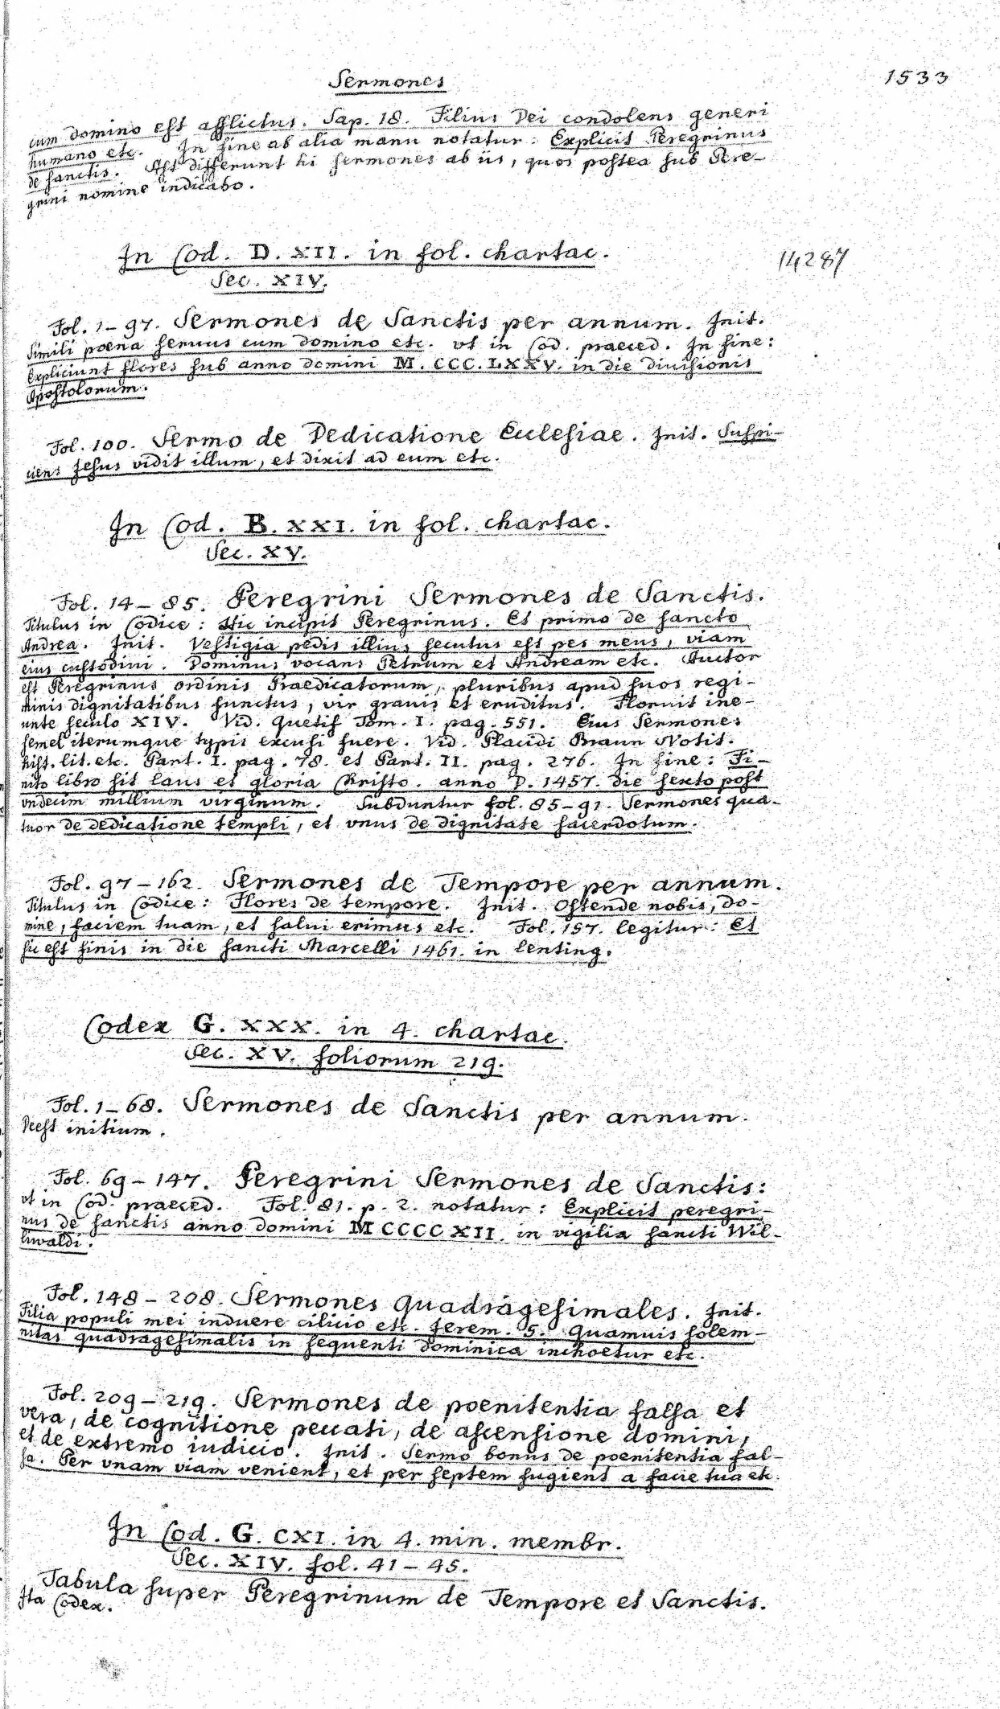 Sermones
1533
cum domino est afflictus. Sap. 18. Filius Dei condolens generi
humano etc. In fine ab alia manu notatur: Explicit Peregrinus
de sanctis. Ast differunt hi sermones ab iis, quos postea sub Pere-
grini nomine indicabo.
In Cod. D. XII. in fol. chartac.
14287
Sec. XIV.
Fol. 1-97. Sermones de Sanctis per annum. Init.
Simili poena seruus cum domino etc. vt in Cod. praeced. In fine:
Expliciunt flores sub anno domini M. CCC. LXXV. in die diuisionis
Apostolorum.
Fol. 100. Sermo de Dedicatione Ecclesiae. Init. Suspi-
ciens Jesus vidit illum, et dixit ad eum etc.
In Cod. B. XXI. in fol. chartac.
Sec. XV.
Fol. 14-85. Peregrini Sermones de Sanctis.
Titulus in Codice: Hic incipit Peregrinus. Et primo de sancto
Andrea. Init. Vestigia pedis illius secutus est pes meus, viam
eius custodiui. Dominus vocans Petrum et Andream etc. Auctor
est Peregrinus ordinis Praedicatorum, pluribus apud suos regi-
minis dignitatibus functus, vir grauis et eruditus. Floruit ine-
unte seculo XIV. Vid. Quetif Tom. I. pag. 551. Eius Sermones
semel iterumque typis excusi fuere. Vid. Placidi Braun Notit.
hist. lit. etc. Part. I. pag. 78. et Part. II. pag. 276. In fine: Fi-
nito libro sit laus et gloria Christo. anno D. 1457. die sexto post
vndecim millium virginum. Subduntur fol. 85-91. Sermones qua-
tuor de dedicatione templi, et vnus de dignitate sacerdotum.
Fol. 97-162. Sermones de Tempore per annum.
Titulus in Codice: Flores de tempore. Init. Ostende nobis, Do-
mine, faciem tuam, et salui erimus etc. Fol. 157. legitur: Et
sic est finis in die sancti Marcelli 1461. in lenting.
Codex G. XXX. in 4. chartac.
Sec. XV. foliorum 219.
Fol. 1-68. Sermones de Sanctis per annum.
Deest initium.
Fol. 69-147. Peregrini Sermones de Sanctis:
vt in Cod. praeced. Fol. 81. p. 2. notatur: Explicit peregri-
nus de sanctis anno domini MCCCCXII. in vigilia sancti Wil-
liwaldi.
Fol. 148-208. Sermones Quadragesimales. Init.
Filia populi mei induere cilicio etc. Jerem. 5. Quamuis solem-
nitas quadragesimalis in sequenti dominica inchoetur etc.
Fol. 209-219. Sermones de poenitentia falsa et
vera, de cognitione peccati, de ascensione domini,
et de extremo iudicio. Init. Sermo bonus de poenitentia fal-
sa. Per vnam viam venient, et per septem fugient a facie tua etc.
In Cod. G. CXI. in 4. min. membr.
Sec. XIV. fol. 41-45.
Tabula super Peregrinum de Tempore et Sanctis.
Ita Codex.